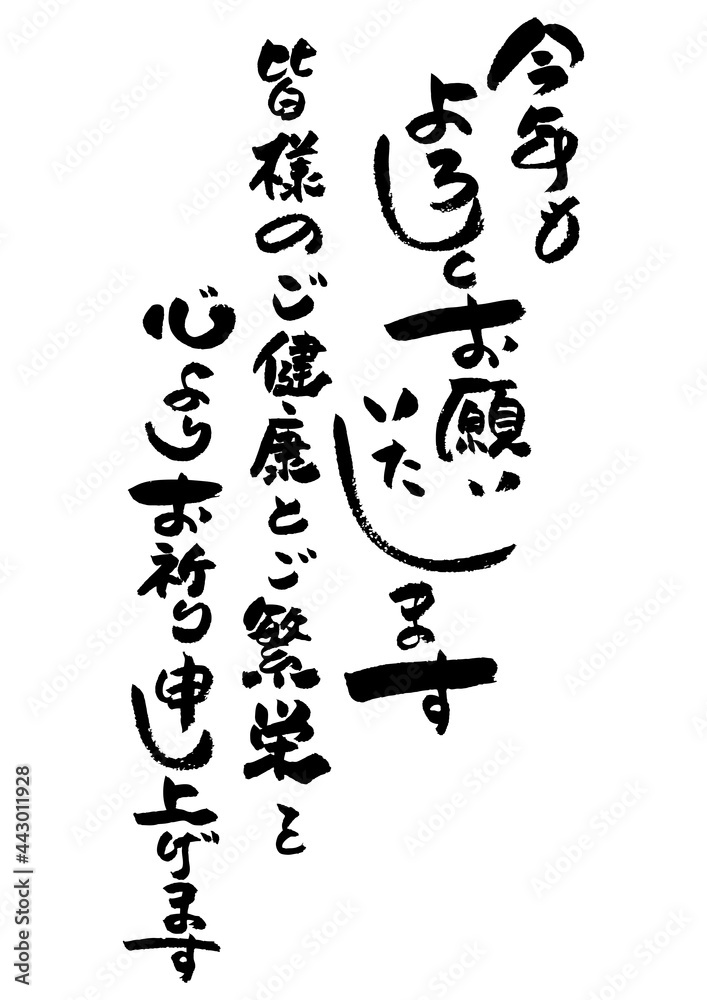 今年も
よろしくお願い
いたします
皆様のご健康とご繁栄を
心よりお祈り申し上げます
Adobe Stock | #443011928